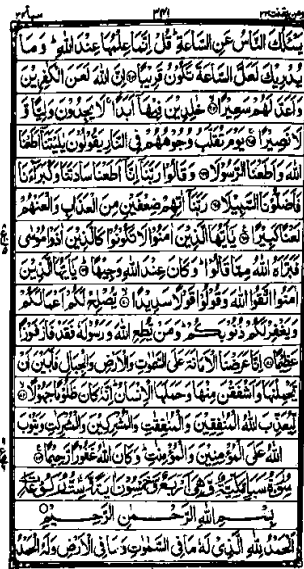 ومن یقنت ۲۲ ۳۴۱ سبا ۳۴
يَسْـَٔلُكَ النَّاسُ عَنِ السَّاعَةِ ؕ قُلْ اِنَّمَا عِلْمُهَا عِنْدَ اللّٰهِ ؕ وَمَا
يُدْرِيْكَ لَعَلَّ السَّاعَةَ تَكُوْنُ قَرِيْبًا ۞ اِنَّ اللّٰهَ لَعَنَ الْكٰفِرِيْنَ
وَاَعَدَّ لَهُمْ سَعِيْرًا ۞ خٰلِدِيْنَ فِيْهَاۤ اَبَدًا ۚ لَا يَجِدُوْنَ وَلِيًّا وَّ
لَا نَصِيْرًا ۞ يَوْمَ تُقَلَّبُ وُجُوْهُهُمْ فِي النَّارِ يَقُوْلُوْنَ يٰلَيْتَنَاۤ اَطَعْنَا
اللّٰهَ وَاَطَعْنَا الرَّسُوْلَا ۞ وَقَالُوْا رَبَّنَاۤ اِنَّاۤ اَطَعْنَا سَادَتَنَا وَكُبَرَآءَنَا
فَاَضَلُّوْنَا السَّبِيْلَا ۞ رَبَّنَاۤ اٰتِهِمْ ضِعْفَيْنِ مِنَ الْعَذَابِ وَالْعَنْهُمْ
لَعْنًا كَبِيْرًا ۞ يٰۤاَيُّهَا الَّذِيْنَ اٰمَنُوْا لَا تَكُوْنُوْا كَالَّذِيْنَ اٰذَوْا مُوْسٰى
فَبَرَّاَهُ اللّٰهُ مِمَّا قَالُوْا ؕ وَكَانَ عِنْدَ اللّٰهِ وَجِيْهًا ۞ يٰۤاَيُّهَا الَّذِيْنَ
اٰمَنُوا اتَّقُوا اللّٰهَ وَقُوْلُوْا قَوْلًا سَدِيْدًا ۞ يُّصْلِحْ لَكُمْ اَعْمَالَكُمْ
وَيَغْفِرْ لَكُمْ ذُنُوْبَكُمْ ؕ وَمَنْ يُّطِعِ اللّٰهَ وَرَسُوْلَهٗ فَقَدْ فَازَ فَوْزًا
عَظِيْمًا ۞ اِنَّا عَرَضْنَا الْاَمَانَةَ عَلَى السَّمٰوٰتِ وَالْاَرْضِ وَالْجِبَالِ فَاَبَيْنَ اَنْ
يَّحْمِلْنَهَا وَاَشْفَقْنَ مِنْهَا وَحَمَلَهَا الْاِنْسَانُ ؕ اِنَّهٗ كَانَ ظَلُوْمًا جَهُوْلًا ۞
لِّيُعَذِّبَ اللّٰهُ الْمُنٰفِقِيْنَ وَالْمُنٰفِقٰتِ وَالْمُشْرِكِيْنَ وَالْمُشْرِكٰتِ وَيَتُوْبَ
اللّٰهُ عَلَى الْمُؤْمِنِيْنَ وَالْمُؤْمِنٰتِ ؕ وَكَانَ اللّٰهُ غَفُوْرًا رَّحِيْمًا ۞
سُوْرَةُ سَبَاٍ مَّكِّيَّةٌ وَّهِىَ اَرْبَعٌ وَّخَمْسُوْنَ اٰيَةً
بِسْمِ اللّٰهِ الرَّحْمٰنِ الرَّحِيْمِ
اَلْحَمْدُ لِلّٰهِ الَّذِيْ لَهٗ مَا فِي السَّمٰوٰتِ وَمَا فِي الْاَرْضِ وَلَهُ الْحَمْدُ